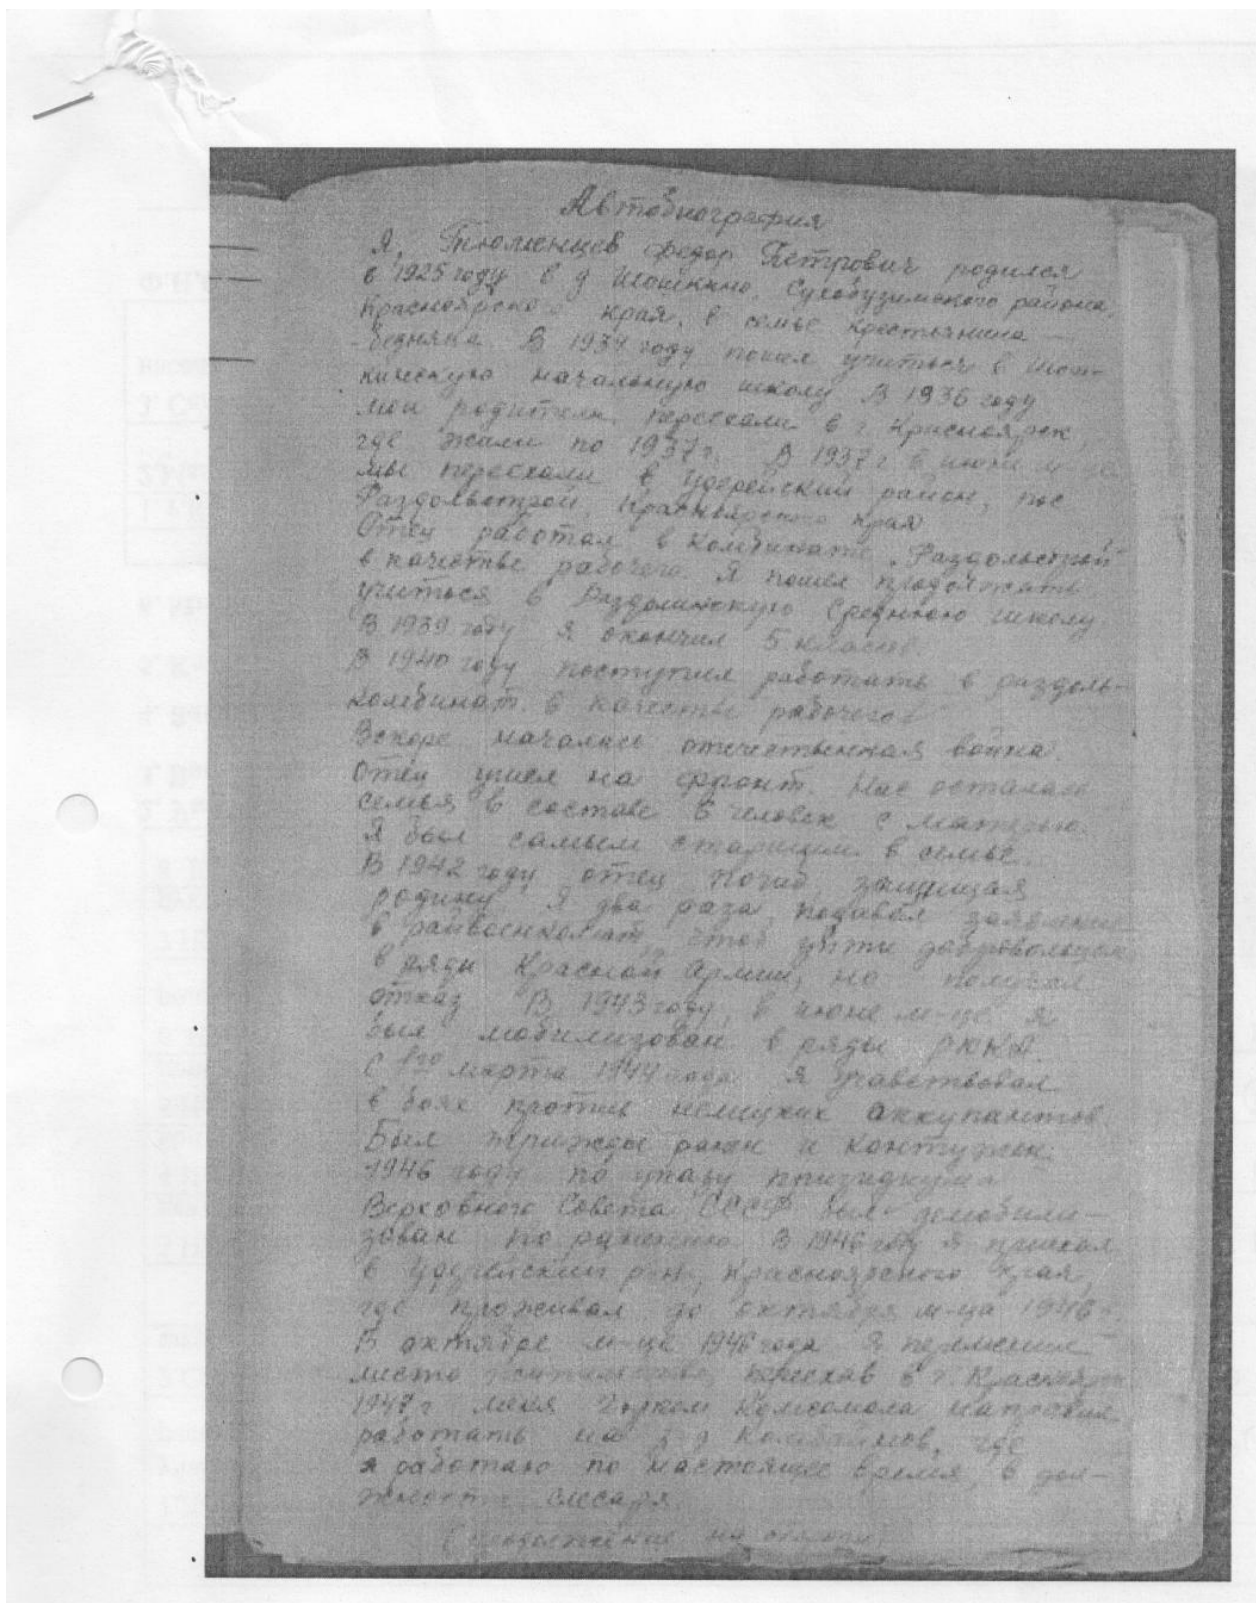 Автобиография
Я, Тюменцев Федор Петрович родился
в 1925 году в д Шошкино, Сухобузимского района,
Красноярского края, в семье крестьянина —
-бедняка. В 1934 году пошел учиться в Шош-
кинскую начальную школу В 1936 году
мои родители переехали в г. Красноярск,
где жили по 1937 г. В 1937 г в июне м-це
мы переехали в Удерейский район, пос
Раздольстрой, Красноярского края
Отец работал в комбинате „Раздольстрой
в качестве рабочего. Я пошел продолжать
учиться в Раздолинскую Среднюю школу
В 1939 году я окончил 5 классов.
В 1940 году поступил работать в раздоль-
комбинат. в качестве рабочего
Вскоре началась отечественная война.
Отец ушел на фронт. Нас осталась
семья в составе человек с матерью.
Я был самым старшим в семье.
В 1942 году отец погиб, защищая
родину. Я два раза подавал заявление
в райвоенкомат, чтоб уйти добровольцем
в ряды Красной Армии, но получал
отказ В 1943 году, в июне м-це я
был мобилизован в ряды РККА.
С марта 1944 года я учавствовал
в боях против немецких аккупантов.
Был трижды ранен и контужен.
1946 году по указу призидиума
Верховного Совета СССР был демобили-
зован по ранению В 1946 году я приехал
в Удерейский р-н, Красноярского края,
где проживал до октября м-ца 1946 г.
В октябре м-це 1946 года я переменил
место жительства, переехав в г. Красноярск
1947 г меня Горком Комсомола направил
работать на з-д Комбайнов, где
я работаю по настоящее время, в дол-
жности слесаря.
(продолжение на обороте)